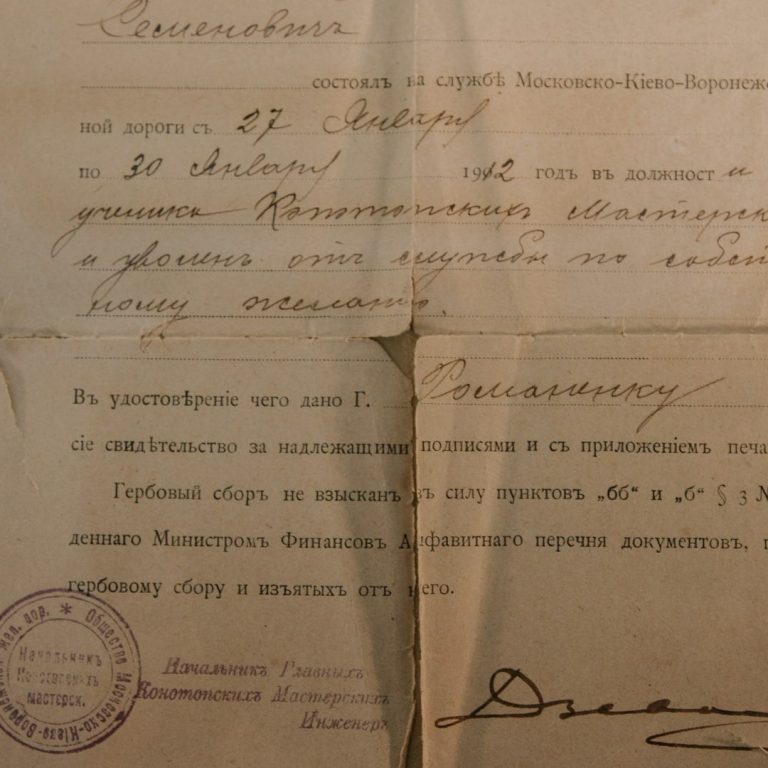 Семеновичъ
состоялъ на службѣ Московско-Кіево-Воронеж
ной дороги съ 27 Января
по 30 Января 1912 годъ въ должност и
ученика Конотопскихъ Мастерск
и уволенъ отъ службы по собст
ному желанію.
Въ удостовѣреніе чего дано Г. Романенку
сіе свидѣтельство за надлежащими подписями и съ приложеніемъ печа
Гербовый сборъ не взысканъ въ силу пунктовъ „бб“ и „б“ § 3 №
деннаго Министромъ Финансовъ Алфавитнаго перечня документовъ,
гербовому сбору и изъятыхъ отъ него.
Общество Московско-Кіево-Воронежской жел. дор.
Начальникъ
Конотопскихъ
мастерск.
Начальникъ Главныхъ
Конотопскихъ Мастерскихъ
Инженеръ